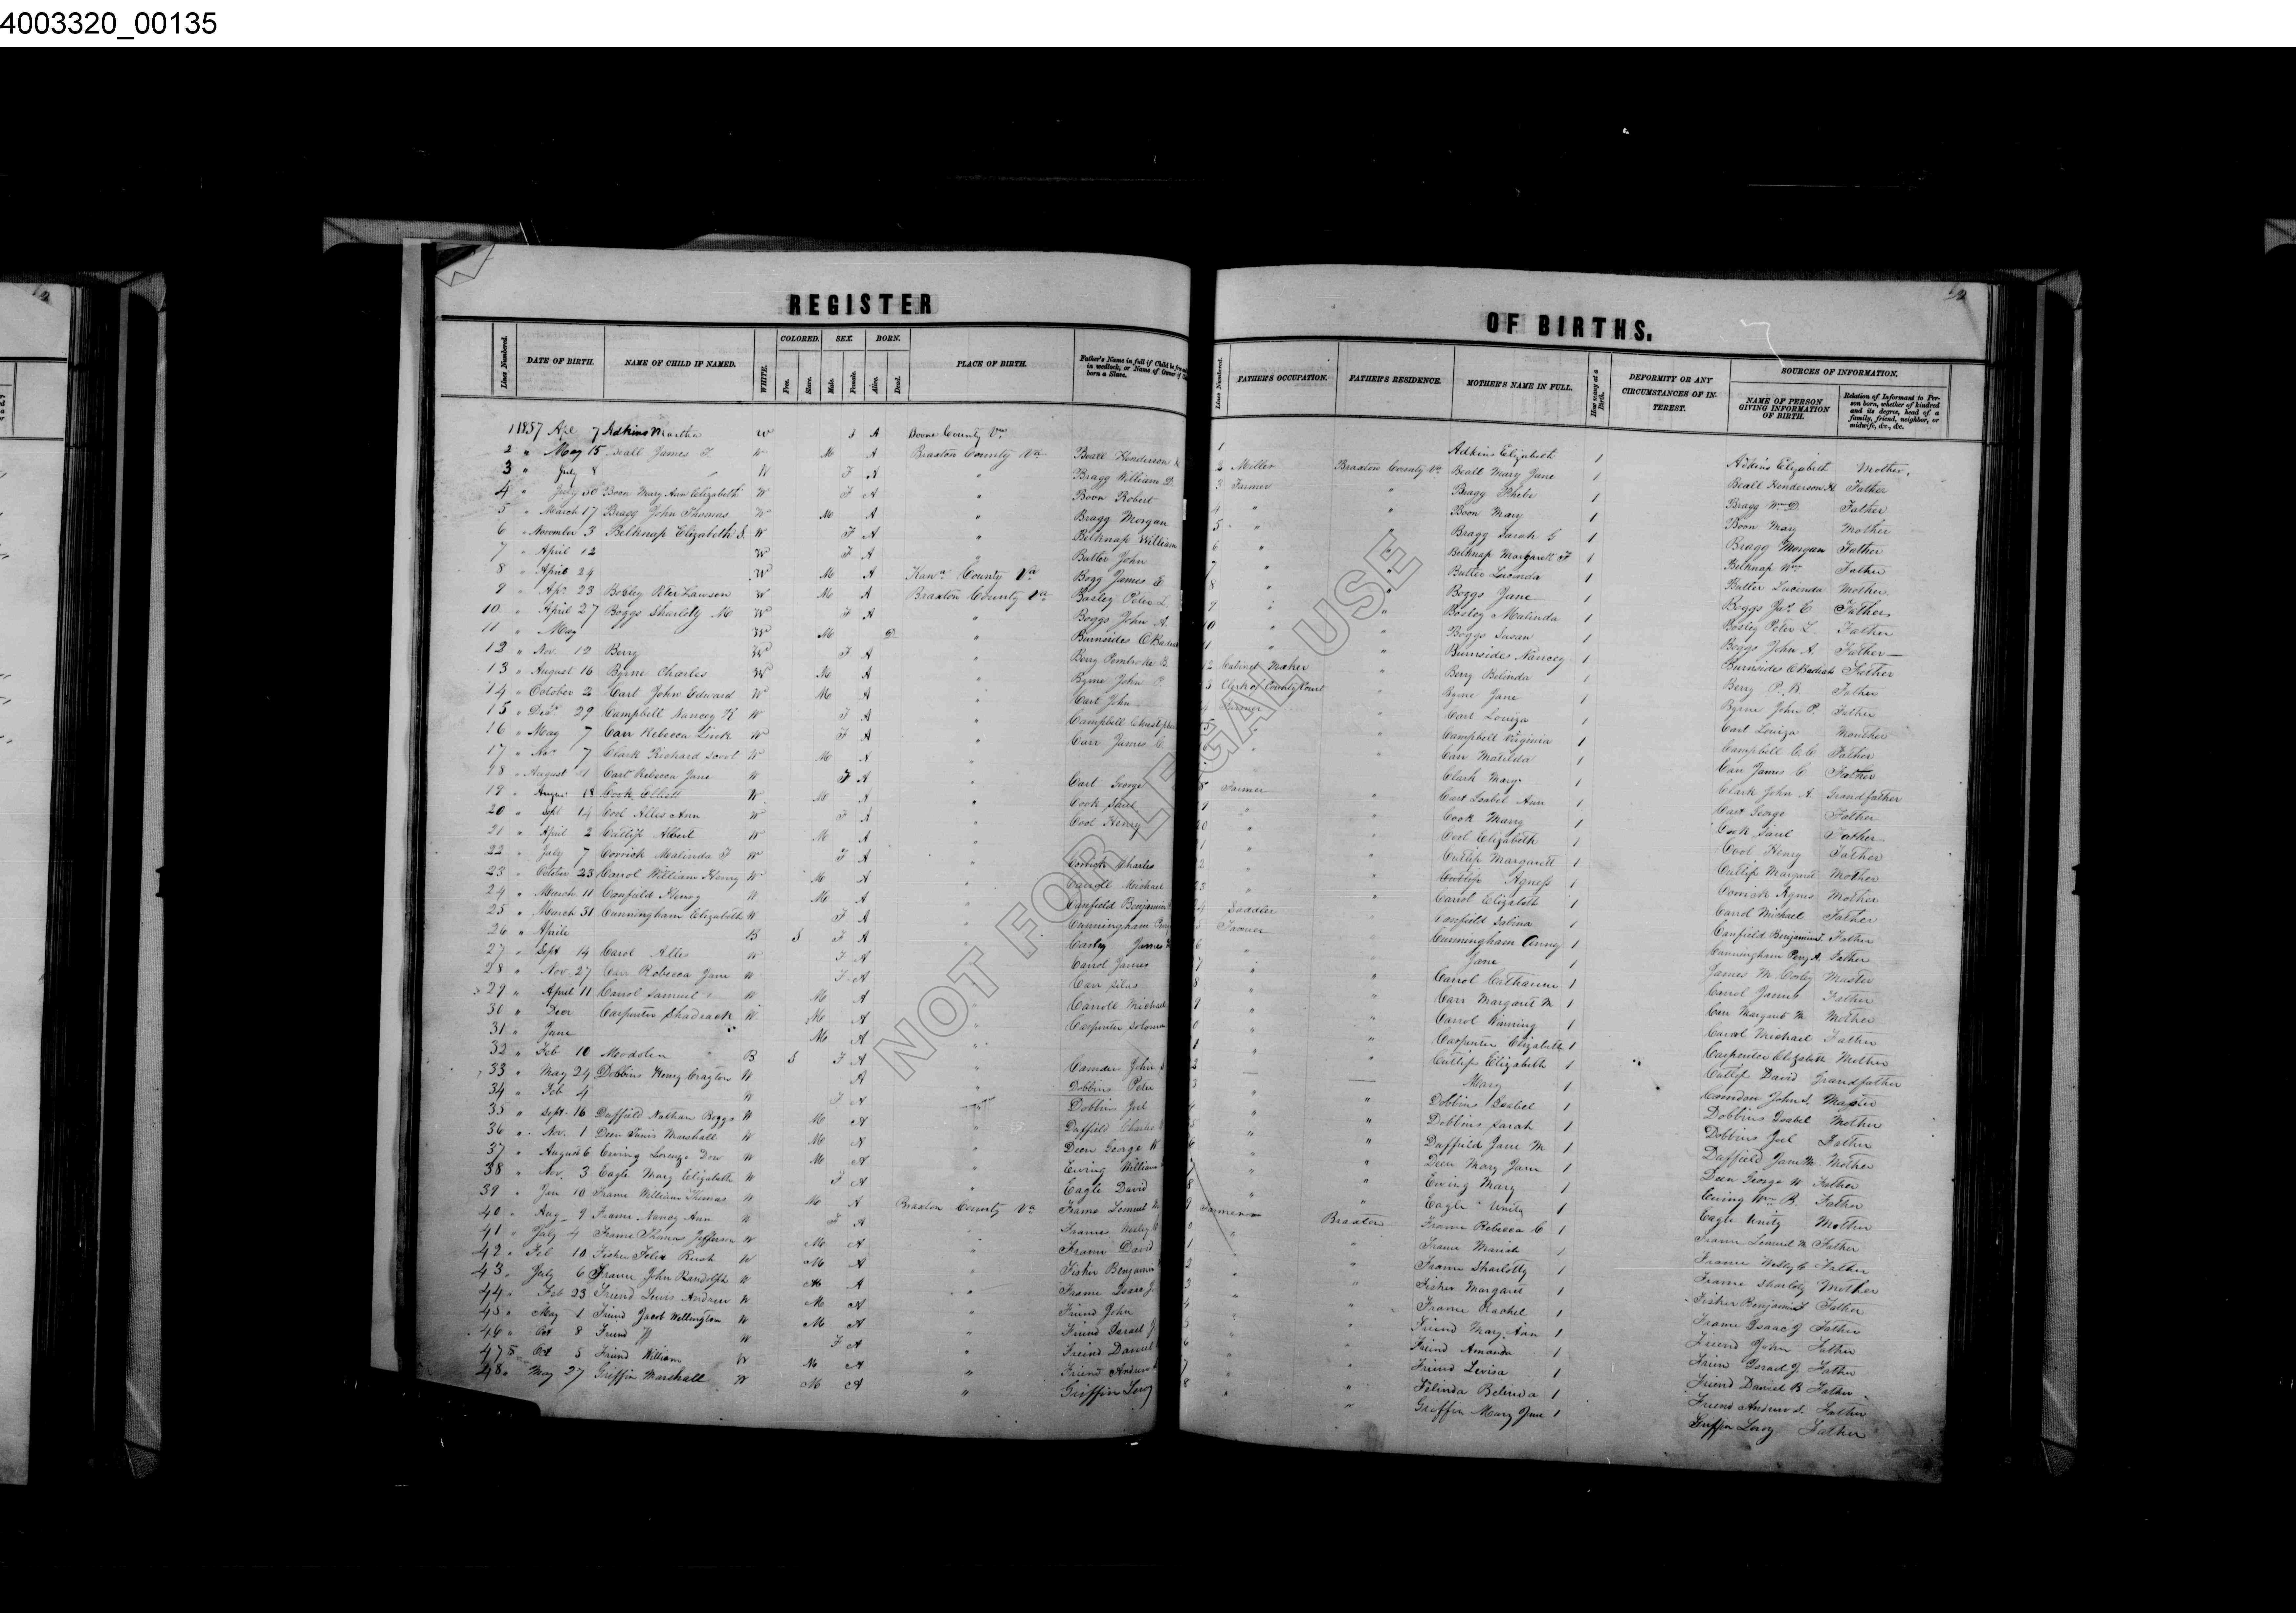 4003320_00135
REGISTER
Lines Numbered. DATE OF BIRTH. NAME OF CHILD IF NAMED. WHITE. COLORED. Free. Slave. SEX. Male. Female. BORN. Alive. Dead. PLACE OF BIRTH. Father's Name in full if Child be
in wedlock, or Name of Owner if
born a Slave.
1 1857 Apl 7 Adkins Martha W F A Boone County Va
2 " May 15 Beall James T W M A Braxton County Va Beall Henderson
3 " July 8 W F A " Bragg William D.
4 " July 30 Boon Mary Ann Elizabeth W F A " Boon Robert
5 " March 17 Bragg John Thomas W M A " Bragg Morgan
6 " November 3 Belknap Elizabeth S. W F A " Belknap William
7 " April 12 W F A " Butler John
8 " April 24 W M A Kana County Va Bogg James E
9 " Apr. 23 Bosley Peter Lawson W M A Braxton County Va Bosley Peter L.
10 " April 27 Boggs Sharloty M W F A " Boggs John A.
11 " May W M D " Burnsides
12 " Nov. 12 Berry W F A " Berry Pembroke B.
13 " August 16 Byrne Charles W M A " Byrne John P.
14 " October 2 Cart John Edward W M A " Cart John
15 " Decr 29 Campbell Nancy K W F A " Campbell
16 " May 7 Carr Rebecca Link W F A " Carr James C
17 " Nov 7 Clark Richard Scoot W M A "
18 " August Cart Rebecca Jane W F A " Cart George
19 " August 18 Cook Elliott W M A " Cook
20 " Sept 14 Cool Alles Ann W F A " Cool Henry
21 " April 2 Cutlip Albert W M A "
22 " July 7 Malinda F W F A " Charles
23 " October 23 Carrol William Henry W M A " Carroll Michael
24 " March 11 Canfield Henry W M A " Canfield Benjamin
25 " March 31 Cunningham Elizabeth W F A " Cunningham
26 " Aprile B S F A " Corley James
27 " Sept 14 Carrol Alles W F A " Carrol James
28 " Nov. 27 Carr Rebecca Jane W F A " Carr Silas
29 " April 11 Carrol Samuel W M A " Carroll Michael
30 " Decr Carpenter Shadrack W M A " Carpenter Solomon
31 " June M A "
32 " Feb 10 B S F A " Camden John S
33 " May 24 Dobbins Henry Crayton W A " Dobbins Peter
34 " Feb 4 W F A Dobbins Joel
35 " Sept 16 Duffield Nathan Boggs W M A " Duffield Charles
36 " Nov. 1 Deen Marshall W M A " Deen George W
37 " August 6 Ewing Lorenzo Dow W M A " Ewing William
38 " Nov. 3 Eagle Mary Elizabeth W F A " Eagle David
39 " Jan 10 Frame William Thomas W M A Braxton County Va Frame Lemuel
40 " Aug 9 Frame Nancy Ann W F A " Frame Wesley C
41 " July 4 Frame Thomas Jefferson W M A " Frame David
42 " Feb 10 Fisher Felix Rush W M A " Fisher Benjamin
43 " July 6 Frame John Randolph W M A " Frame Isaac J.
44 " Feb 23 Friend Lewis Andrew W M A " Friend John
45 " May 1 Friend Jacob Wellington W M A " Friend Israel J
46 " Oct 8 Friend W F A " Friend Daniel
47 " Oct 5 Friend William W M A " Friend Andrew
48 " May 27 Griffin Marshall W M A " Griffin Leroy
OF BIRTHS.
Lines Numbered. FATHER'S OCCUPATION. FATHER'S RESIDENCE. MOTHER'S NAME IN FULL. How many at a Birth. DEFORMITY OR ANY
CIRCUMSTANCES OF IN-
TEREST. SOURCES OF INFORMATION.
NAME OF PERSON
GIVING INFORMATION
OF BIRTH. Relation of Informant to Per-
son born, whether of kindred
and its degree, head of a
family, friend, neighbor, or
midwife, &c., &c.
1 Adkins Elizabeth 1 Adkins Elizabeth Mother
2 Miller Braxton County Va Beall Mary Jane 1 Beall Henderson H Father
3 Farmer " Bragg Phebe 1 Bragg Wm D Father
4 " " Boon Mary 1 Boon Mary Mother
5 " " Bragg Sarah G 1 Bragg Morgan Father
6 " " Belknap Margarett F 1 Belknap Wm Father
7 " " Butler Lucinda 1 Butler Lucinda Mother
8 " " Boggs Jane 1 Boggs Jas. E Father
9 " " Bosley Malinda 1 Bosley Peter L. Father
10 " " Boggs Susan 1 Boggs John A. Father
11 " " Burnsides Nancy 1 Burnsides Father
12 Cabinet Maker " Berry Belinda 1 Berry P. B. Father
13 Clerk of County Court " Byrne Jane 1 Byrne John P. Father
14 Farmer " Cart Louiza 1 Cart Louiza Mouther
" Campbell Virginia 1 Campbell C. C Father
" Carr Matilda 1 Carr James C Father
Clark Mary 1 Clark John A. Grandfather
8 Farmer " Cart Isabel Ann 1 Cart George Father
9 " " Cook Mary 1 Cook Father
20 " " Cool Elizabeth 1 Cool Henry Father
1 " " Cutlip Margarett 1 Cutlip Margaret Mother
2 " " Agness 1 Agnes Mother
3 " " Carrol Elizabeth 1 Carrol Michael Father
24 Saddler " Canfield Sabina 1 Canfield Benjamin Father
5 Farmer " Cunningham Anny 1 Cunningham Perry A. Father
6 " Jane 1 James M. Corley Master
7 " " Carrol Catharine 1 Carrol James Father
8 " " Carr Margaret M 1 Carr Margaret M Mother
9 " " Carrol Winning 1 Carrol Michael Father
0 " " Carpenter Elizabeth 1 Carpenter Elizabeth Mother
1 " " Cutlip Elizabeth 1 Cutlip David Grandfather
2 — — Mary 1 Camden John S. Master
3 " " Dobbins Isabel 1 Dobbins Isabel Mother
" " Dobbins Sarah 1 Dobbins Joel Father
5 " " Duffield Jane M 1 Duffield Jane M. Mother
6 " " Deen Mary Jane 1 Deen George W Father
" " Ewing Mary 1 Ewing Wm B. Father
8 " " Eagle Unity 1 Eagle Unity Mother
9 Farmer Braxton Frame Rebecca C 1 Frame Lemuel M Father
0 " " Frame Mariah 1 Frame Wesley C Father
1 " " Frame Sharlotty 1 Frame Sharloty Mother
2 " " Fisher Margaret 1 Fisher Benjamin Father
3 " " Frame Rachel 1 Frame Isaac J Father
4 " " Friend Mary Ann 1 Friend John Father
5 " " Friend Amanda 1 Friend Israel J. Father
6 " " Friend Levisa 1 Friend Daniel B Father
7 " " Belinda 1 Friend Andrew S. Father
8 " " Griffin Mary Jane 1 Griffin Leroy Father
NOT FOR LEGAL USE